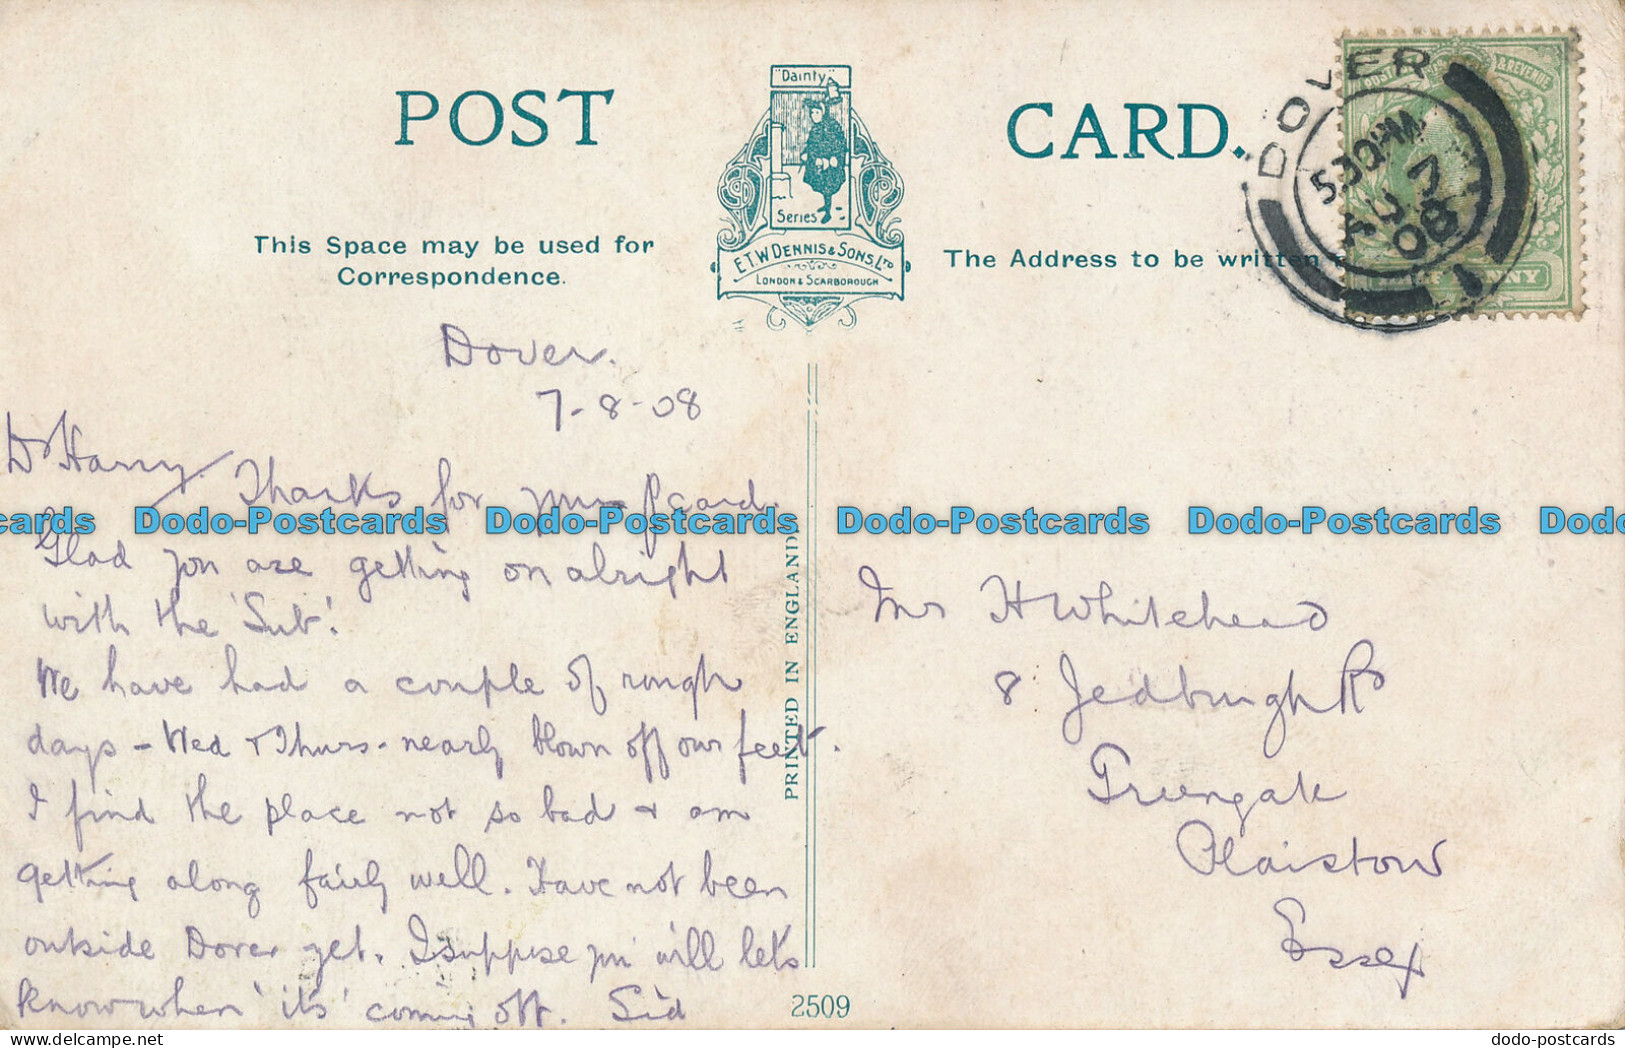 POST CARD.
"Dainty"
Series
E.T.W. DENNIS & SONS, LTD
LONDON & SCARBOROUGH
This Space may be used for
Correspondence.
The Address to be written
DOVER
5 30 PM
AU 7
08
1
& REVENUE
Dover.
7-8-08
Dr Harry. Thanks for your pcard.
Glad you are getting on alright
with the 'Sub'.
We have had a couple of rough
days - Wed & Thurs - nearly blown off our feet.
I find the place not so bad & am
getting along fairly well. Have not been
outside Dover yet. I suppose you will let's
know when 'its' coming off. Sid
PRINTED IN ENGLAND
2509
Mr H Whitehead
8 Jedburgh Rd
Greengate
Plaistow
Essex
cards Dodo-Postcards Dodo-Postcards Dodo-Postcards Dodo-Postcards Dodo
dodo-postcards